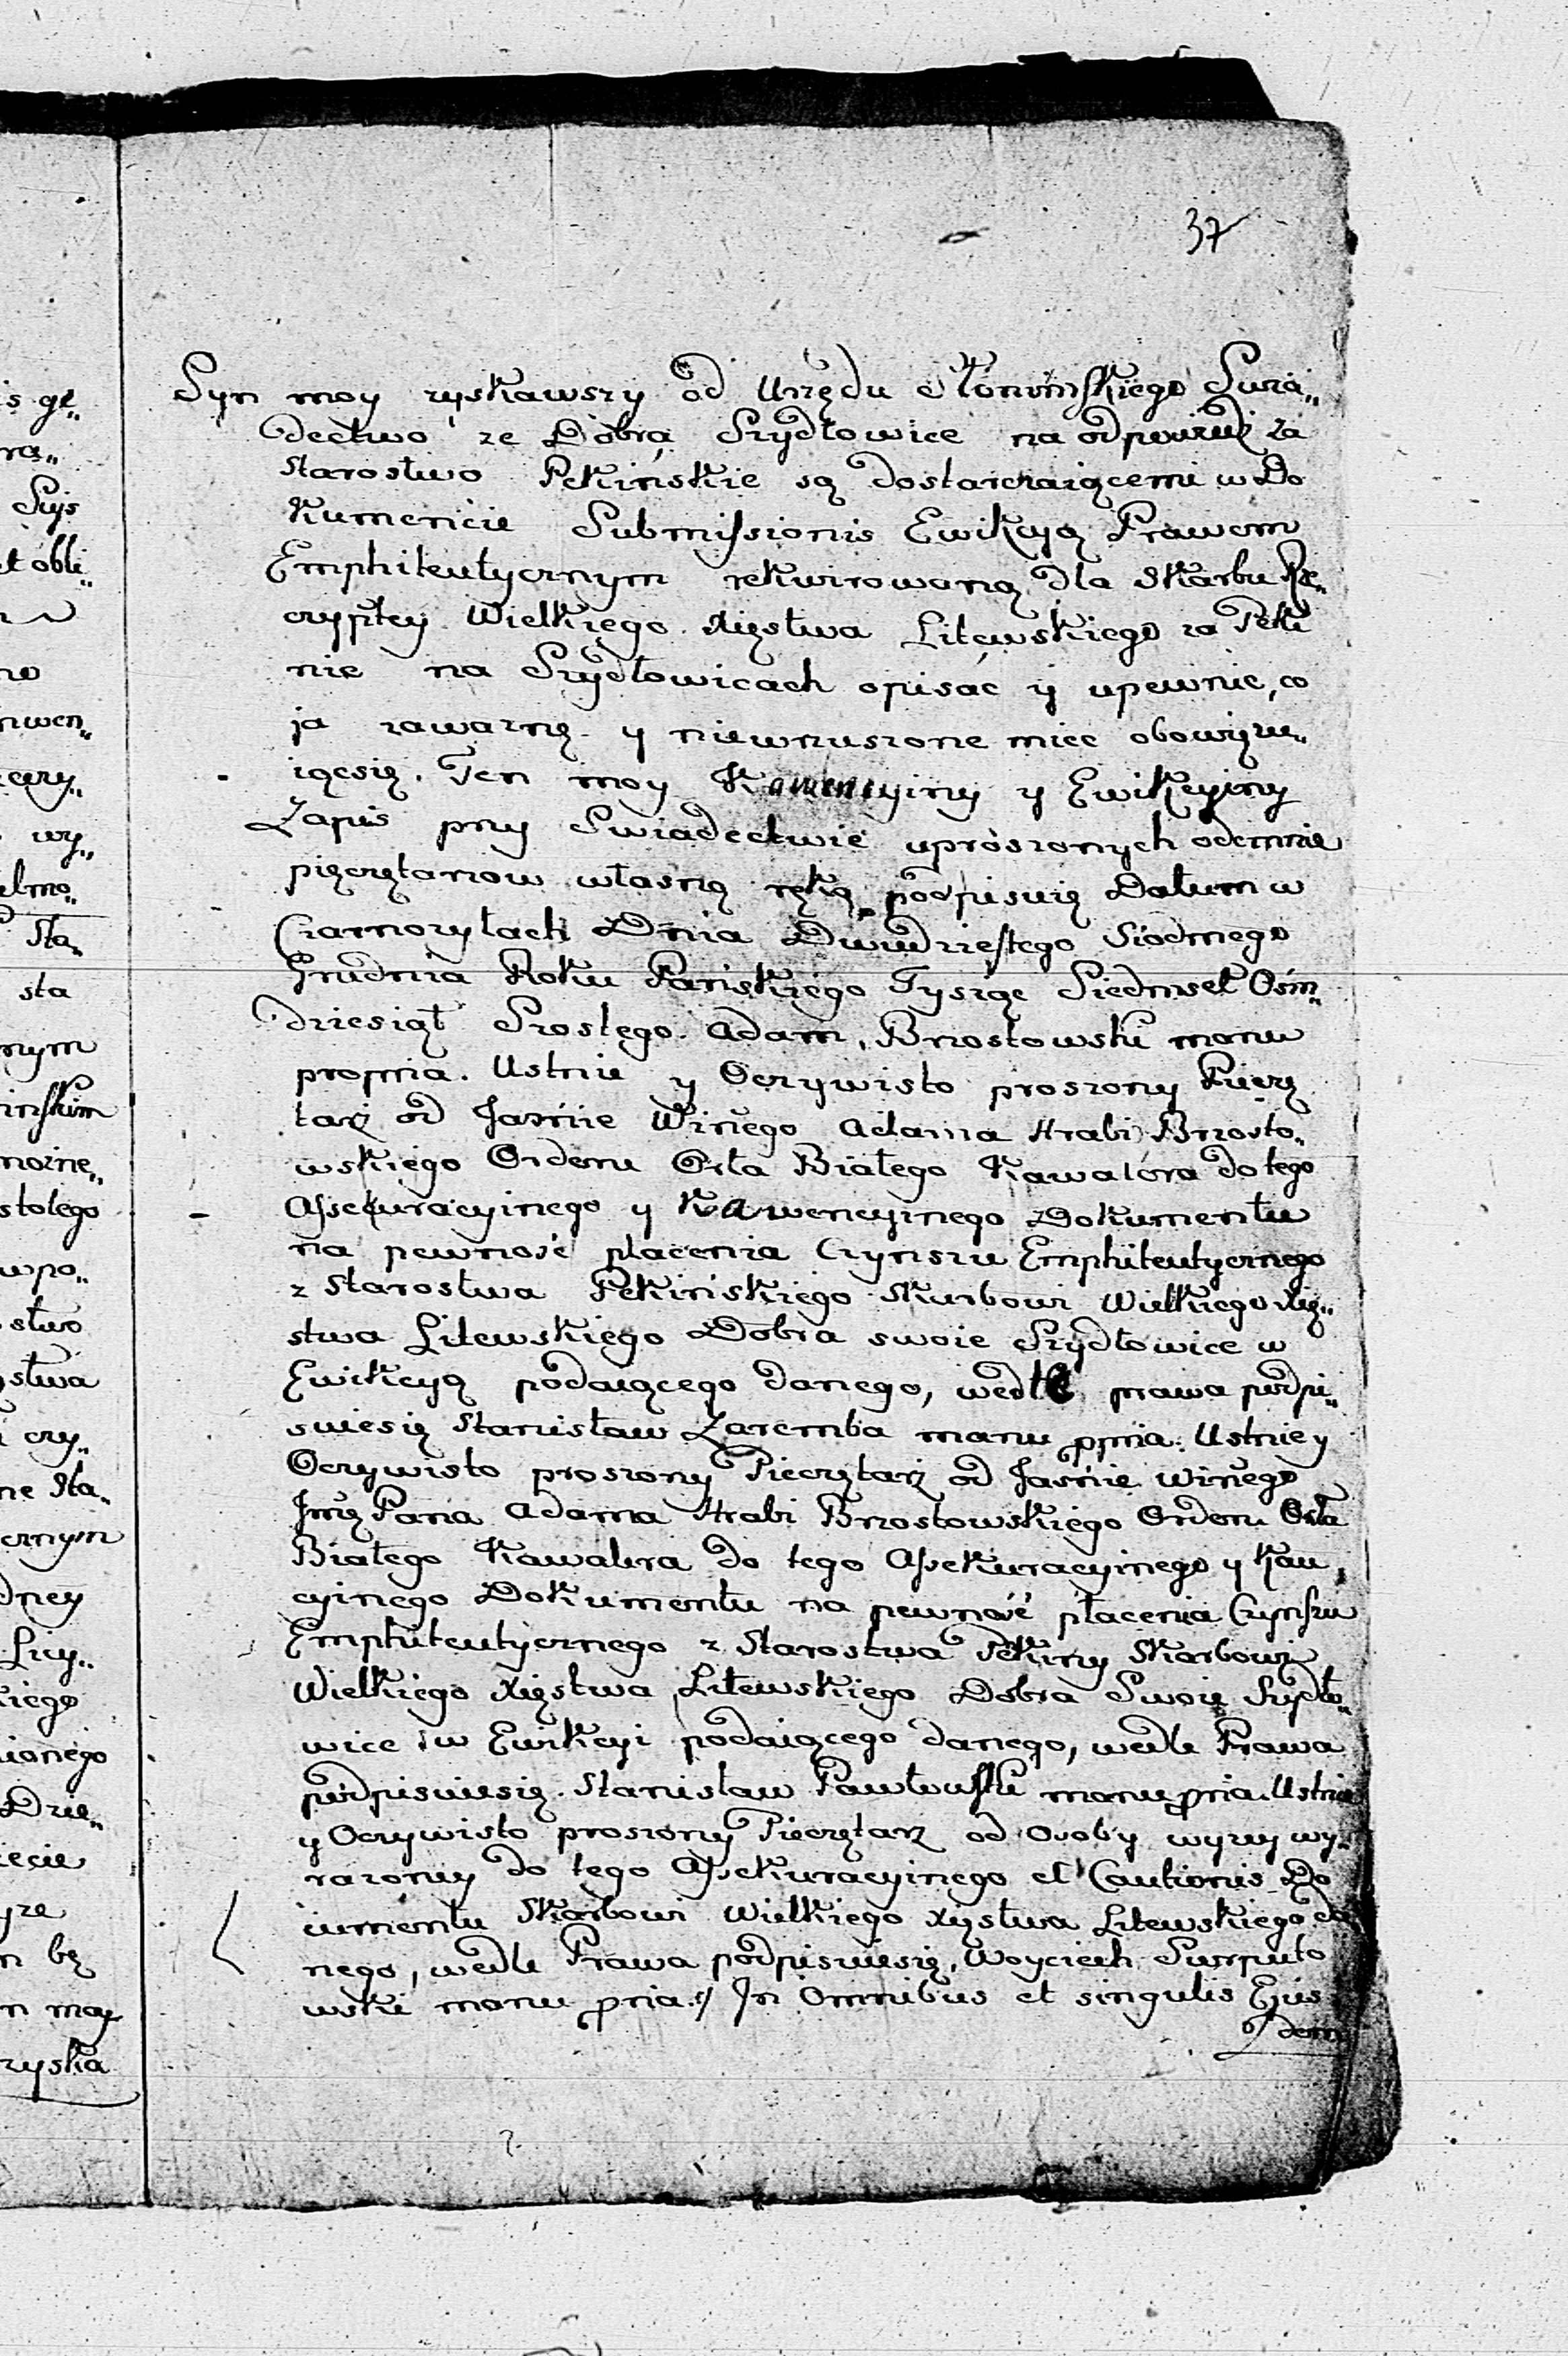 37
Syn moy zyskawszy od Urzędu Słonimskiego Swia„
dectwo że Dobra Szydłowice na odpowiedź za
Starostwo Pekińskie są dostarczaiącemi w Do
kumencie Submissionis Ewikcyą Prawem
Emphiteutycznym rekwirowaną dla Skarbu Rze„
czypltey Wielkiego Xięstwa Litewskiego za Peki
nie na Szydłowicach opisać y upewnić, co
ja zawarzę y niewzruszone mieć obowiązu„
iącsię. Ten moy Kawencyiny y Ewikcyiny
Zapis przy Swiadectwie uproszonych odemnie
pieczętarzow własną ręką podpisuię Datum w
Czarnozyłach Dnia Dwudziestego Siodmego
Grudnia Roku Pańskiego Tysiąc Siedmset Ośm„
dziesiąt Szostego. Adam Brzostowski manu
propria. Ustnie y Oczywisto proszony Pieczę
tarz od Jaśnie Wiñego Adama Hrabi Brzosto„
wskiego Orderu Orła Białego Kawalera do tego
Assekuracyinego y Kawencyinego Dokumentu
na pewność płacenia Czynszu Emphiteutycznego
z Starostwa Pekińskiego Skarbowi Wielkiego Xię„
stwa Litewskiego Dobra swoie Szydłowice w
Ewikcyą podaiącego danego, wedle prawa podpi„
suiesię Stanisław Zaremba manu ppria. Ustnie y
Oczywisto proszony Pieczętarz od Jaśnie Wiñego
Jmę Pana Adama Hrabi Brzostowskiego Orderu Orła
Białego Kawalera do tego Assekuracyinego y Kau„
cyinego Dokumentu na pewność płacenia Czynszu
Emphiteutycznego z Starostwa Pekiny Skarbowi
Wielkiego Xięstwa Litewskiego Dobra Swoie Szydło„
wice w Ewikcyi podaiącego danego, wedle Prawa
podpisuiesię. Stanisław Pawłowski manu pria. Ustnie
y Oczywisto proszony Pieczętarz od Osoby wyzey wy„
razoney do tego Assekuracyinego et Cautionis Do
iumentu Skarbowi Wielkiego Xięstwa Litewskiego da
nego, wedle Prawa podpisuiesię, Woyciech
wski manu pria. // In Omnibus et singulis Ejus
dem